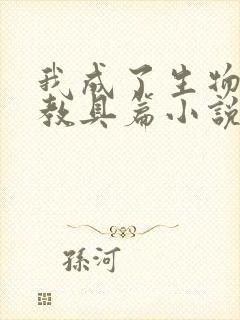 我成了生物
教具篇小說
孫河